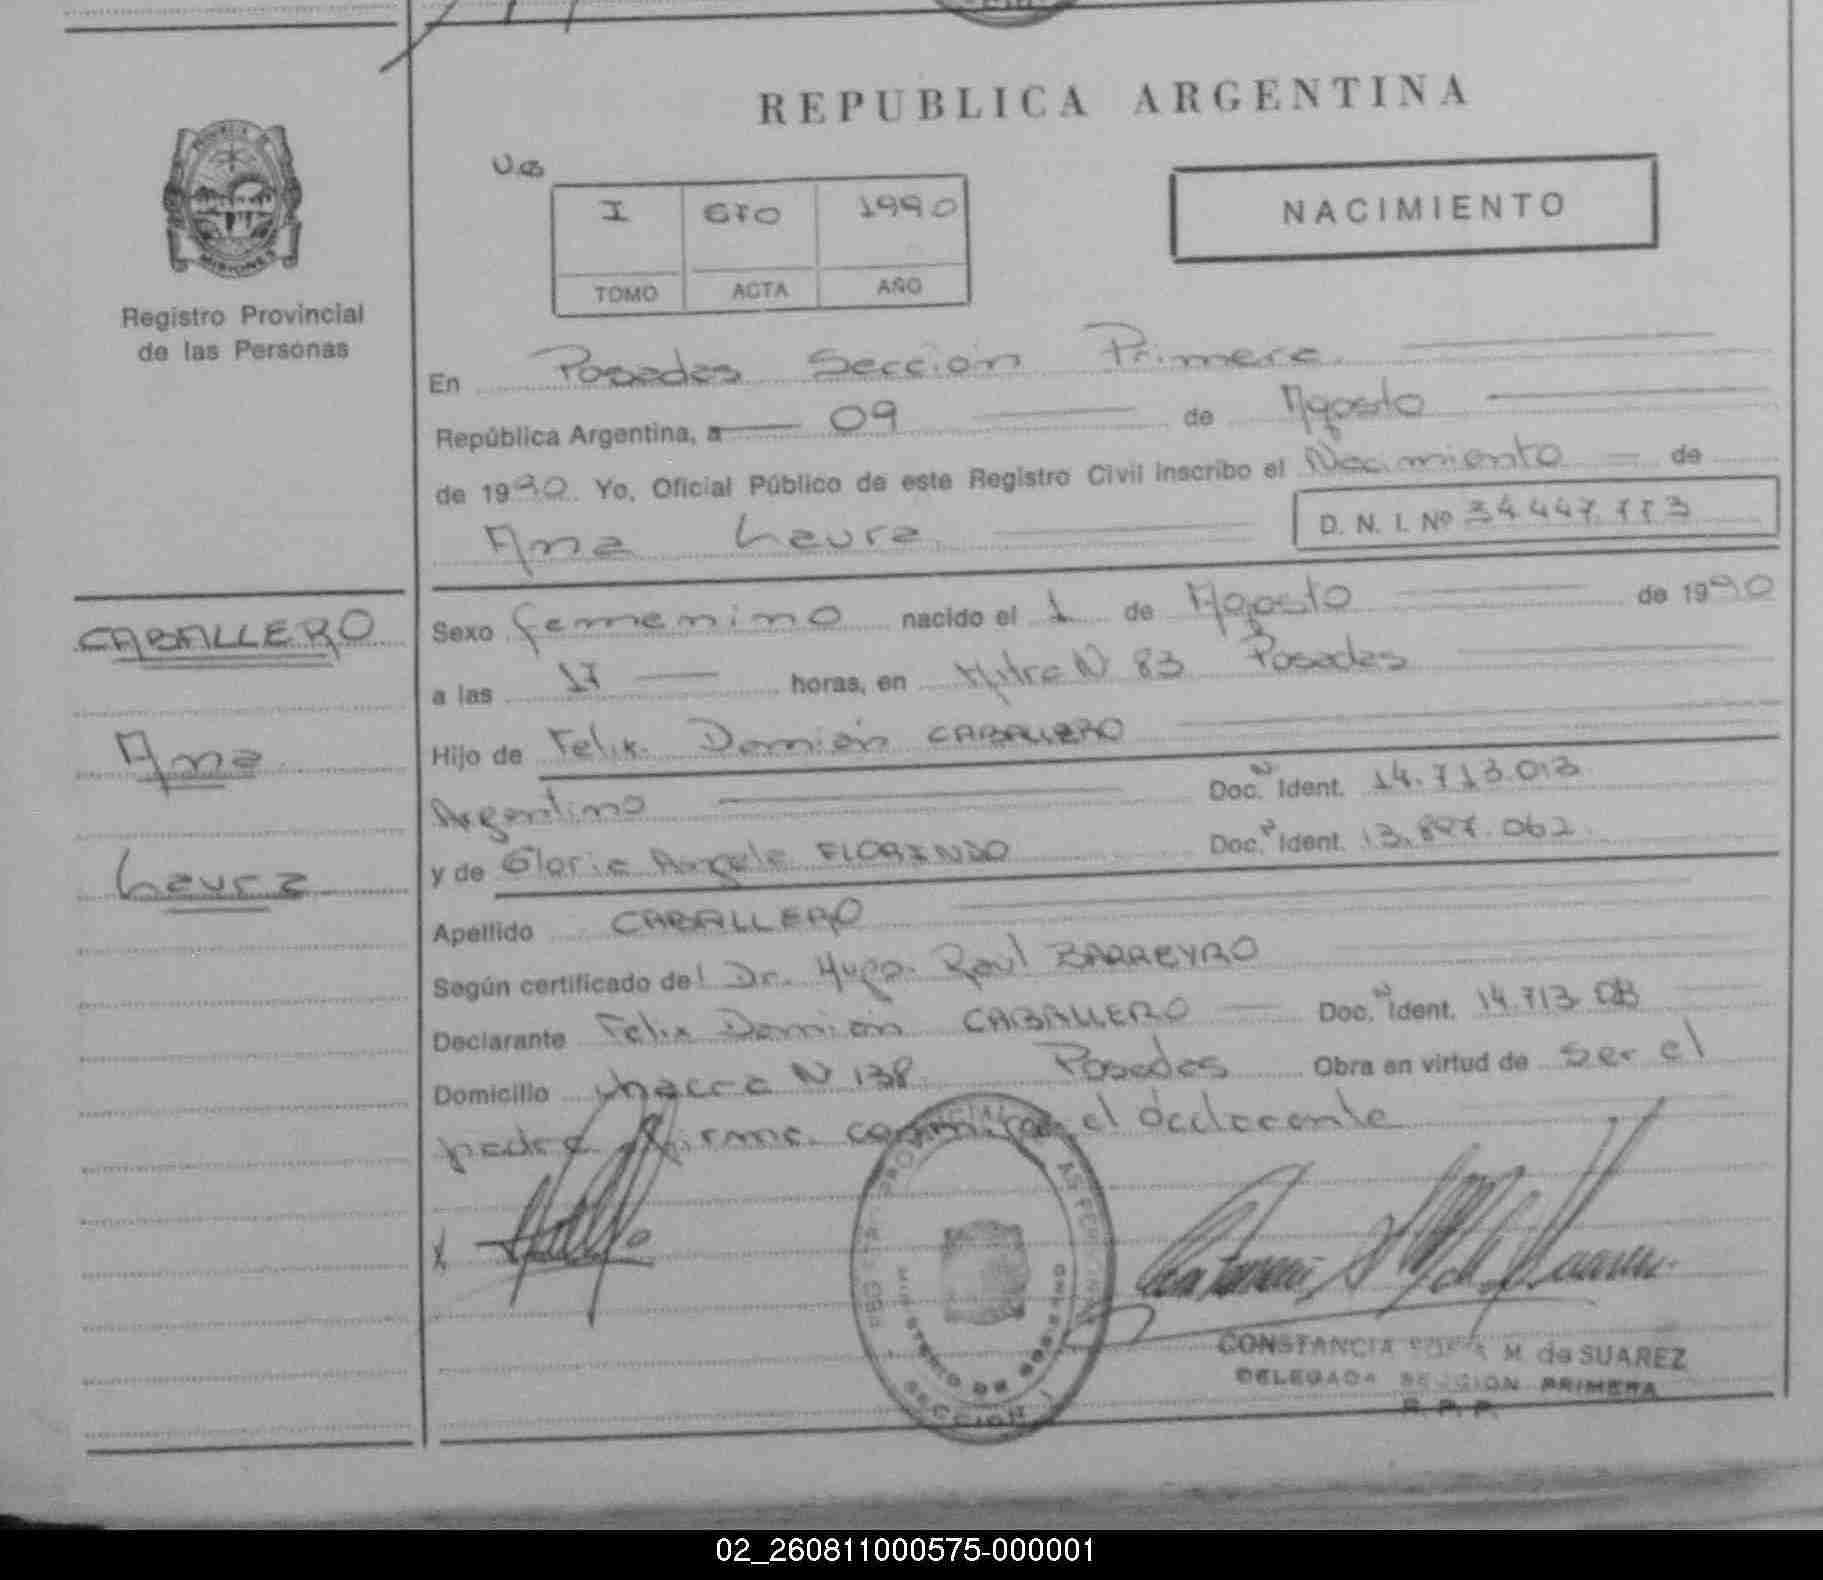 REPUBLICA ARGENTINA
MISIONES
Registro Provincial
de las Personas
I 670 1990
TOMO ACTA AÑO
NACIMIENTO
En Posadas Sección Primera
República Argentina, a 09 de Agosto
de 1990. Yo, Oficial Público de este Registro Civil inscribo el Nacimiento de
Ana Laura
D. N. I. Nº 34.447.773
CABALLERO
Ana
Laura
Sexo femenino nacido el 1 de Agosto de 1990
a las 17 horas, en Mitre N 83 Posadas
Hijo de Felix Damián CABALLERO
Argentino Doc. N Ident. 14.713.013
y de Gloria Angela FLORINDO Doc. Ident. 13.897.062
Apellido CABALLERO
Según certificado del Dr. Hugo Raul BARREYRO
Declarante Felix Damián CABALLERO Doc. N Ident. 14.713.013
Domicilio chacra N 138 Posadas Obra en virtud de ser el
padre firma el declarante
x
MINISTERIO DE
SECCION I
CONSTANCIA M. de SUAREZ
DELEGADA SECCION PRIMERA
R. P. P.
02_260811000575-000001